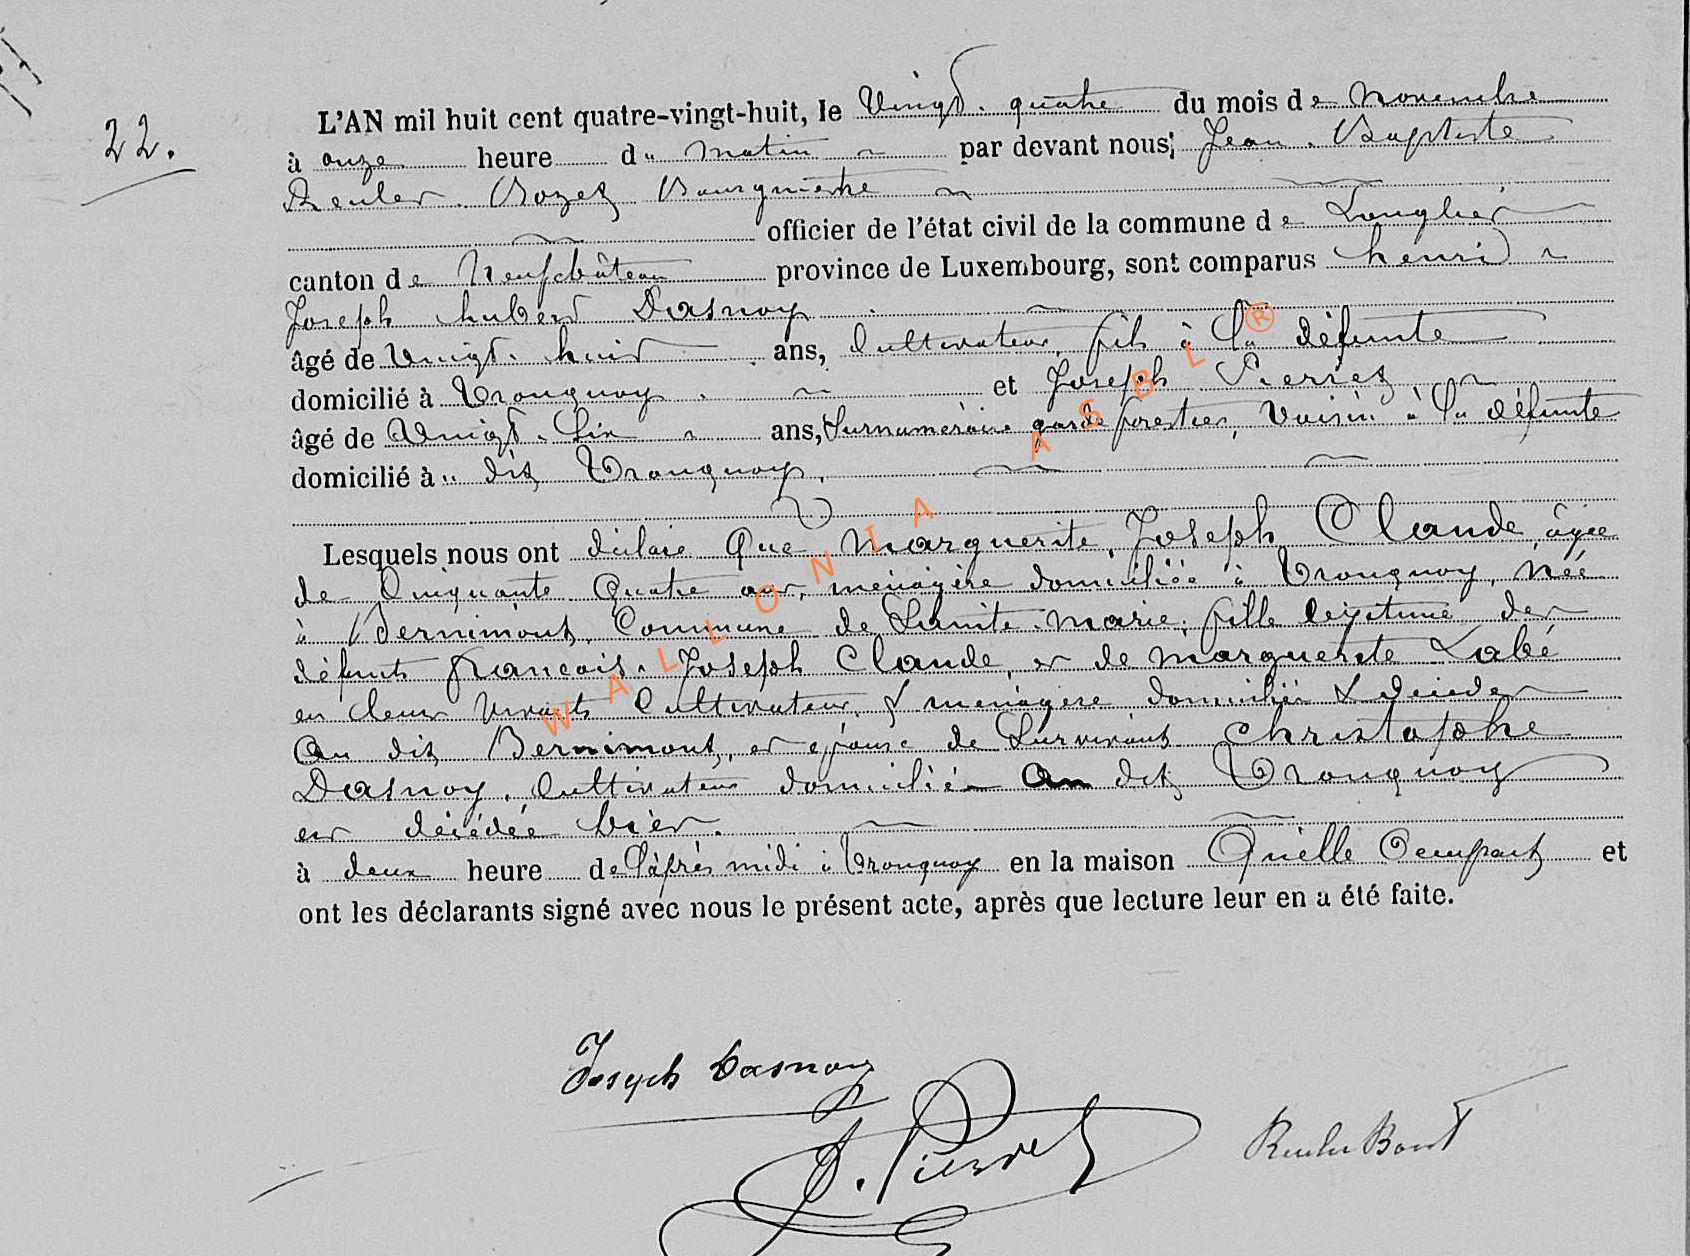 22.
L'AN mil huit cent quatre-vingt-huit, le Vingt-quatre du mois de Novembre
à onze heure du matin par devant nous; Jean-Baptiste
Reuler Bozet Bourgmestre
officier de l'état civil de la commune de Longlier
canton de Neufchâteau province de Luxembourg, sont comparus henri
Joseph hubert Dasnoy
âgé de Vingt-huit ans, Cultivateur, fils à la défunte
domicilié à Tronquoy et Joseph Pierret
âgé de Vingt-Six ans, Surnuméraire garde forestier, Voisin à la défunte
domicilié à u dit Tronquoy.
Lesquels nous ont déclaré Que Marguerite, Joseph Claude, âgée
de Cinquante Quatre ans, ménagère domiciliée à Tronquoy, Née
à Bernimont, Commune de Sainte-Marie, fille légitime des
défunts francois-Joseph Claude, et de Marguerite Labé
en leur vivants Cultivateur & ménagère domiciliés & décédés
Au dit Bernimont, et épouse de Survivant Christophe
Dasnoy, Cultivateur domicilié Au dit Tronquoy
est décédée hier.
à deux heure de l'après midi à Tronquoy en la maison Qu'elle Occupait et
ont les déclarants signé avec nous le présent acte, après que lecture leur en a été faite.
Joseph Dasnoy
J. Pierret
Reuler Bozet
WALLONIA ASBL ®